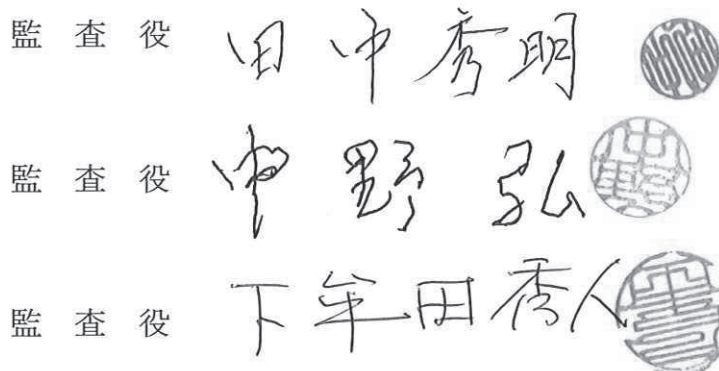 監査役 田中秀明
監査役 中野弘
監査役 下牟田秀人